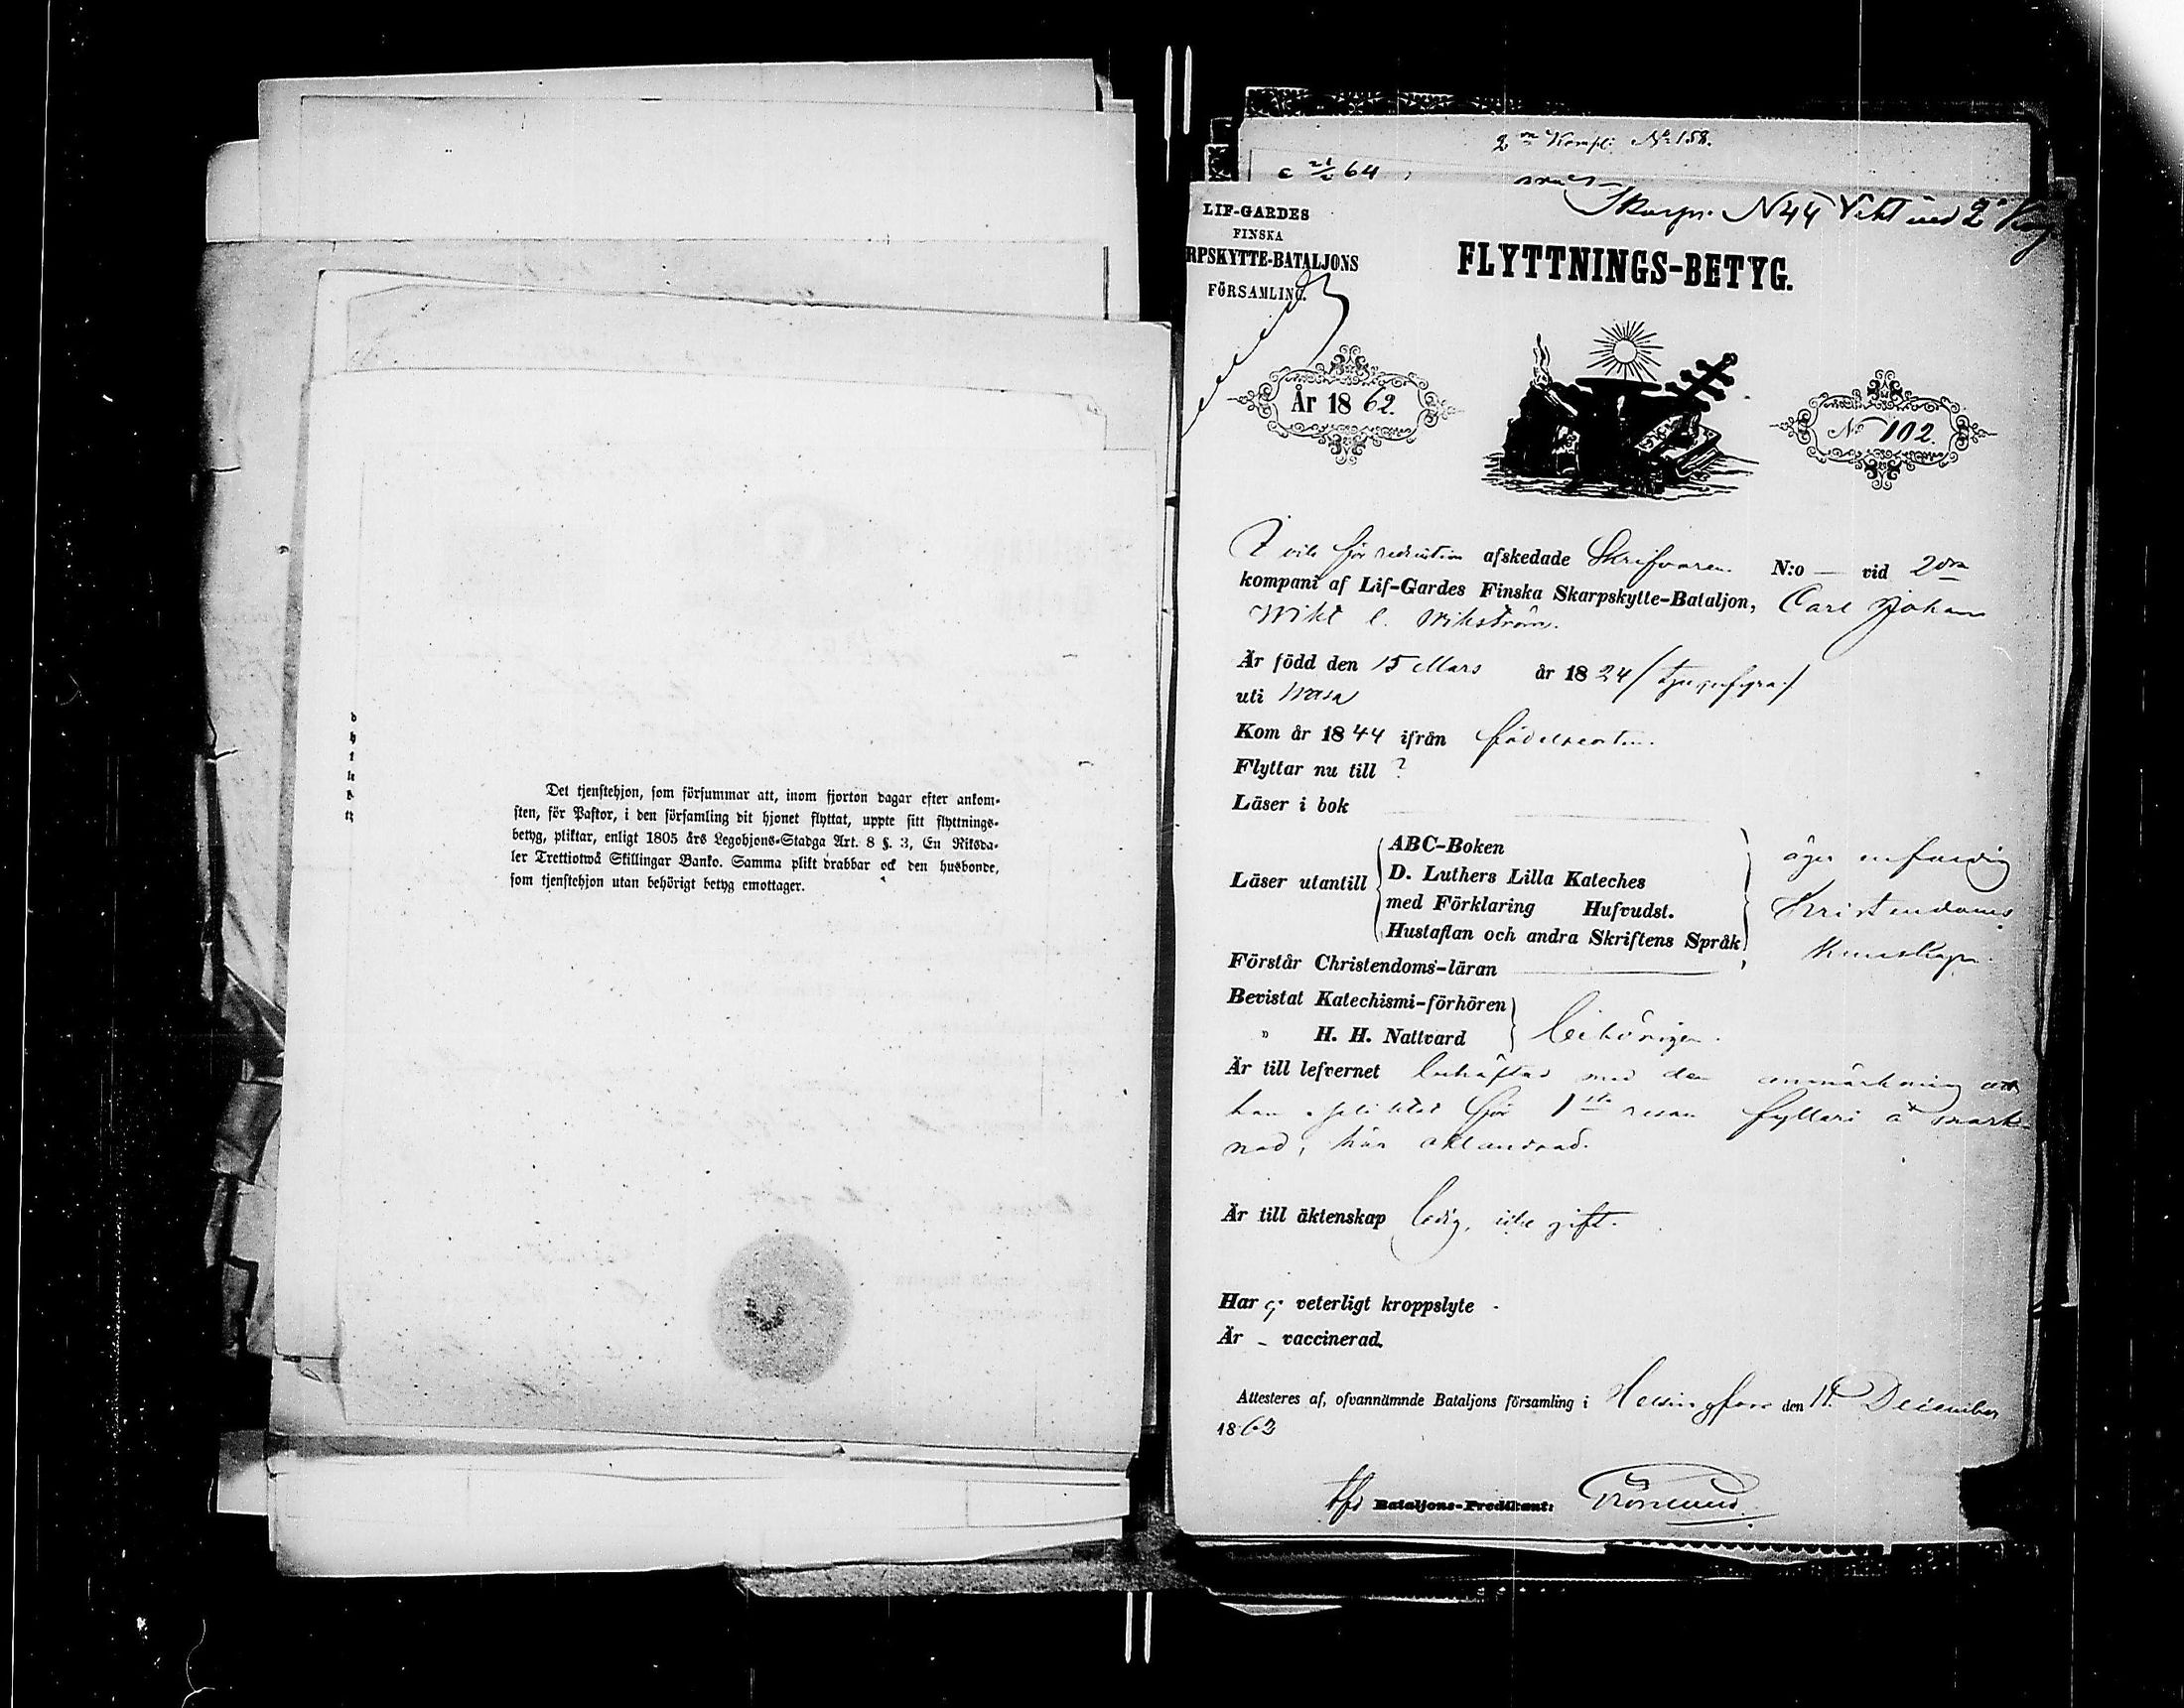 Det tjenstehjon, som försummar att, inom fjorton dagar efter ankom-
sten, för Pastor, i den församling dit hjonet flyttat, uppte sitt flyttnings-
betyg, pliktar, enligt 1805 års Legohjons-Stadga Art. 8 §. 3, En Riksda-
ler Trettiotwå Skillingar Banko. Samma plikt drabbar ock den husbonde,
som tjenstehjon utan behörigt betyg emottager.
Kompi No 158.
64
Skarpr. N 44
LIF-GARDES
FINSKA
RPSKYTTE-BATALJONS
FÖRSAMLING.
FLYTTNINGS-BETYG.
År 18 62.
No 102.
för reduction afskedade Skrifvaren N:o — vid 2dra
kompani af Lif-Gardes Finska Skarpskytte-Bataljon, Carl Johan
Wikström.
Är född den 15 Mars år 18 24 / tjugufyra /
uti Wasa
Kom år 18 44 ifrån födelseorten.
Flyttar nu till ?
Läser i bok
Läser utantill
ABC-Boken
D. Luthers Lilla Kateches
med Förklaring Hufvudst.
Hustaflan och andra Skriftens Språk
äger
Kristendoms
kunskap.
Förstår Christendoms-läran
Bevistat Katechismi-förhören
" H. H. Nattvard
behörigen.
Är till lefvernet behäftad med den anmärkning att
han pliktat för 1sta resan fylleri å mark-
nad, här oklandrad.
Är till äktenskap ledig, icke gift.
Har ej veterligt kroppslyte -
Är - vaccinerad.
Attesteres af, ofvannämnde Bataljons församling i Helsingfors den December
1862
Bataljons-Predikant: